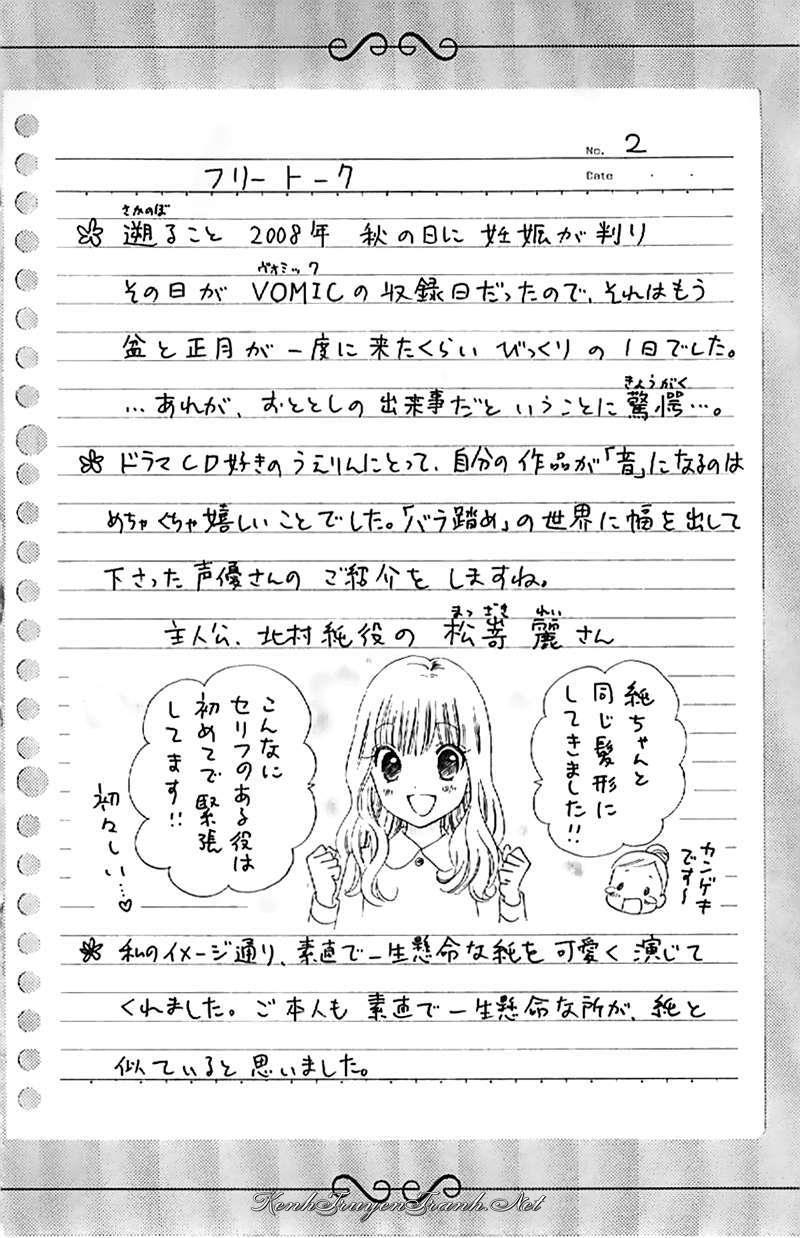 No. 2
フリートーク
Date
さかのぼ
遡ること 2008年 秋の日に 妊娠が判り
ヴォミック
その日が VOMICの収録日だったので、それはもう
盆と正月が一度に来たくらい びっくりの1日でした。
きょうがく
…あれが、おととしの出来事だということに驚愕…。
ドラマCD好きのうえりんにとって、自分の作品が「音」になるのは
めちゃくちゃ嬉しいことでした。「バラ踏め」の世界に幅を出して
下さった声優さんの ご紹介を しますね。
まつざき れい
主人公、北村純役の 松嵜 麗さん
純ちゃんと
同じ髪形に
してきました!!
カンゲキ
です〜
こんなに
セリフのある役は
初めてで緊張
してます!!
初々しい…♡
私のイメージ通り、素直で一生懸命な純を可愛く演じて
くれました。ご本人も素直で一生懸命な所が、純と
似ていると思いました。
KenhTruyenTranh.Net